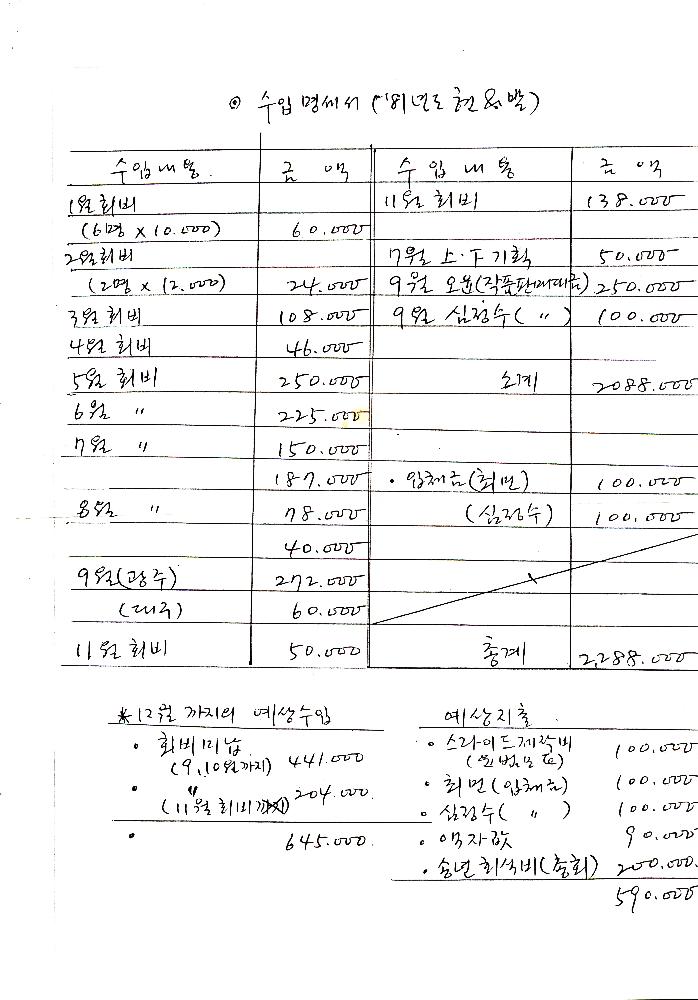 ⊙ 수입명세서 ('81년도 현실과 발)
수입내용 금액 수입내용 금액
1월회비 11월 회비 138.000
(6명 × 10.000) 60.000
2월회비 7월 上·下기획 50.000
(2명 × 12.000) 24.000 9월 오윤(작품판매대금) 250.000
3월회비 108.000 9월 심정수( " ) 100.000
4월 회비 46.000
5월 회비 250.000 소계 2088.000
6월 " 225.000
7월 " 150.000
187.000 · 입체금(최민) 100.000
8월 " 78.000 (심정수) 100.000
40.000
9월(광주) 272.000
(대구) 60.000
11월 회비 50.000 총계 2,288.000
*12월까지의 예상수입
· 회비미납
(9,10월까지) 441.000
· " 204.000.
(11월 회비까지)
· 645.000.
예상지출
· 스라이드제작비 100.000
(원범모)
· 최민(입체금) 100.000
· 심정수( " ) 100.000
· 액자값 90.000
· 송년회식비(총회) 200.000.
590.000